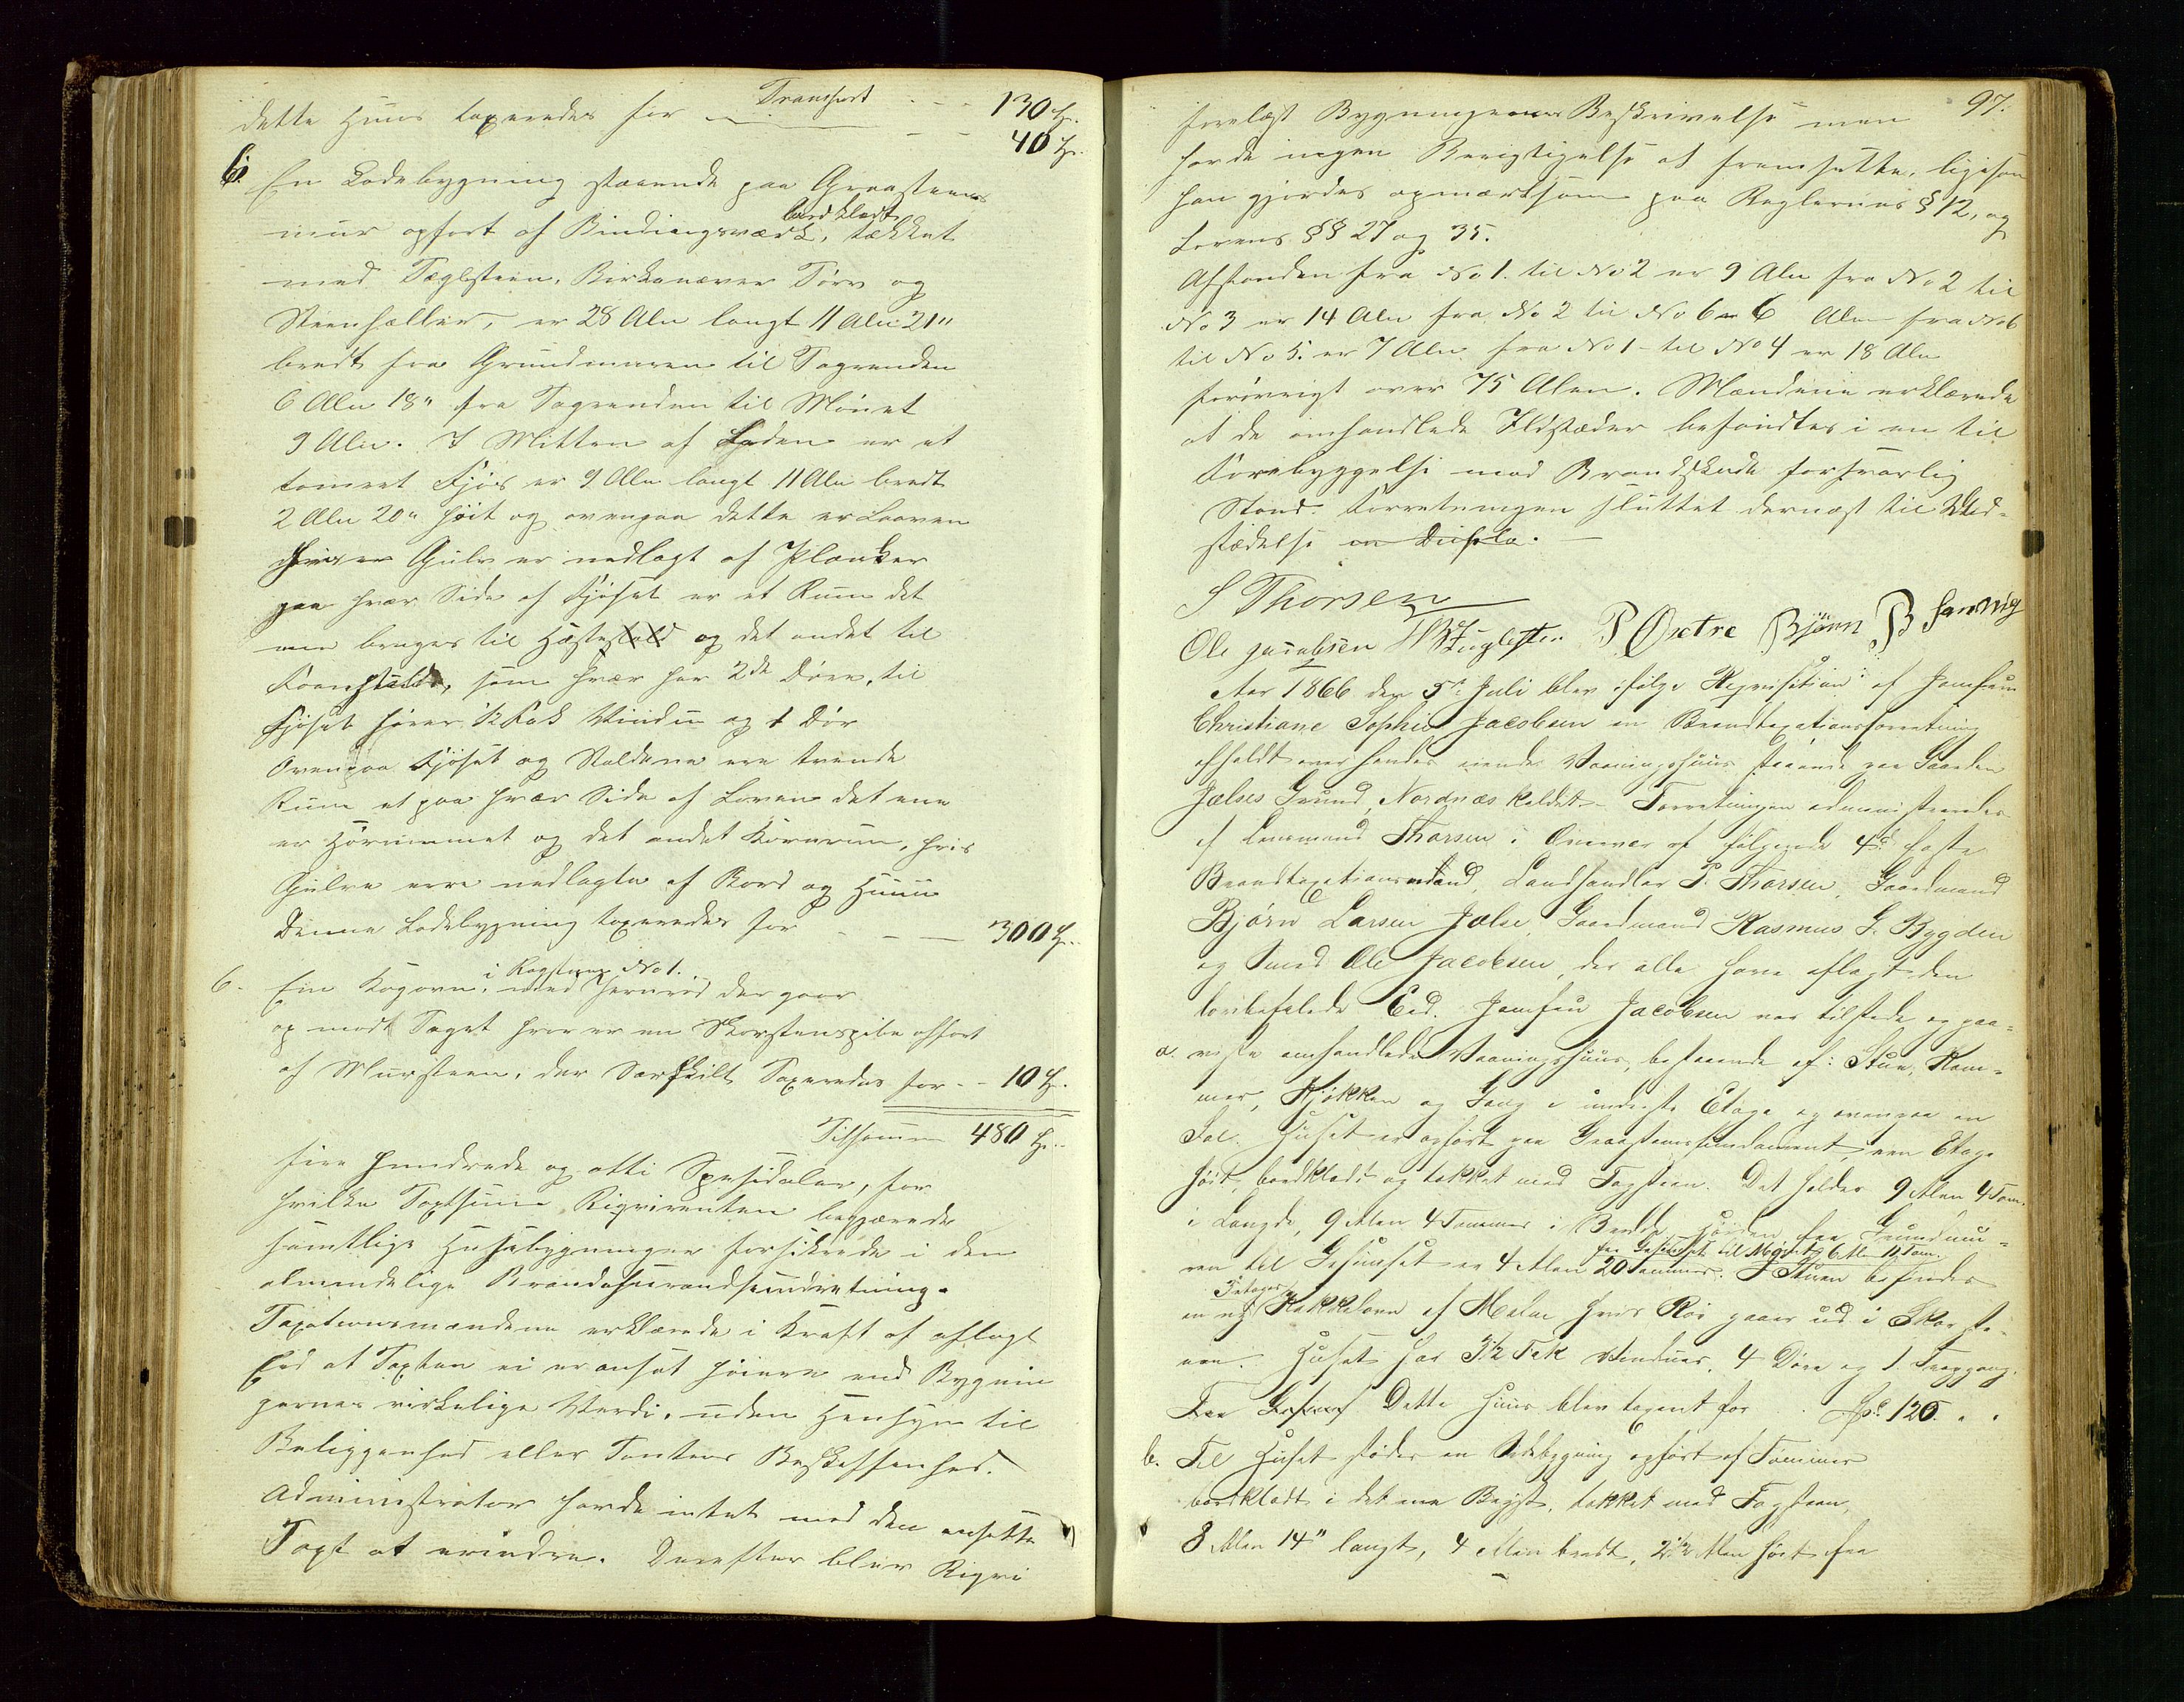 Transport - - - 130 Sp.
dette Huus taxeredes for - - 40 Sp.
6. En Ladebygning staaende paa Graasteens
mur opført af Bindingsværk, bordklædt, tækket
med Tæglsteen, Birkenæver Tørv og
Steenhæller, er 28 Alen langt 11 Alen 21"
bredt fra Grundmuren til Tagrenden
6 Alen 18" fra Tagrenden til Mønet
9 Alen. I Mitten af Laden er et
tømret Fjøs er 9 Alen langt 11 Alen bredt
2 Alen 20" høit og ovenpaa dette er Laaven
hvis Gulv er nedlagt af Planker
paa hver Side af Fjøset er et Rum det
ene bruges til Hestestald og det andet til
som hver har 2de Døre, til
Fjøset hører 1/2 Fak Vindue og 1 Dør
Ovenpaa Fjøset og Staldene ere trende
Rum et paa hver Side af Loven det ene
er Hørummet og det andet Kornrum, hvis
Gulve ere nedlagte af Bord og
Denne Ladebygning taxeredes for - - - 300 Sp.
6. En Kogovn, i Røgstuen No 1. med Jernrør der gaar
op mod Taget hvor er en Skorstenspibe opført
af Mursteen, der Særskilt Taxeredes for - - 10 Sp.
Tilsammen 480 Sp.
fire hundrede og otti Spesidaler, for
hvilke Taxtsum Rigvirenten begjærede
samtlige Husebygninger forsikrede i den
almindelige Brandasurandseindretning.
Taxationsmændene erklærede i Kraft af aflagt
Eed at Taxten ei er ansat høiere end Bygnin
gernes virkelige Verdi, uden Hensyn til
Beliggenhed eller Tomtens Beskaffenhed.
Administrator havde intet mod den ansatte
Taxt at erindre. Derefter blev Rigvi
97.
forelæst Bygningernes Beskrivelse men
havde ingen Berigtigelse at fremsætte, ligesom
han gjordes opmærksom paa Reglernes § 12, og
Lovens §§ 27 og 35.
Afstanden fra No 1. til No 2 er 9 Alen fra No 2 til
No 3 er 14 Alen fra No 2 til No 6 er 6 Alen fra No 6
til No 5. er 7 Alen fra No 1 til No 4 er 18 Alen
forøvrigt over 75 Alen. Mændene erklærede
at de omhandlede Ildstæder befandtes i en til
Forebyggelse mod Brandskade forsvarlig
Stand. Forretningen sluttet dernæst til Ud-
stædelse in Duplo.
S Thorsen
Ole Jacobsen P Østre Bjørn
Aar 1866 den 5te Juli blev ifølge Reqvisition af Jomfru
Christiane Sophie Jacobsen en Brandtaxationsforretning
afholdt over hendes eiende Vaaningshuus staaende paa Gaarden
Jælses Grund, Nordnæs kaldet. Forretningen administreredes
af Lensmand Thorsen i Overvær af følgende 4de faste
Brandtaxationsmænd, Landhandler P. Thorsen, Gaardmand
Bjørn Larsen Jælse, Gaardmand Rasmus G. Bygden
og Smed Ole Jacobsen, der alle have aflagt den
lovbefalede Eed. Jomfru Jacobsen var tilstede og paa-
a. viste omhandlede Vaaningshuus, bestaaende af: Stue, Kam-
mer, Kjøkken og Gang i underste Etage og ovenpaa en
Sal. Huset er opført paa Graasteensfundament, een Etage
høit, bordklædt og tækket med Tagsteen. Det holder 9 Alen 4 Tom.
i Længde, 9 Alen 4 Tommer i Bredde. Høiden fra Grundmu-
ren til Gesimset er 4 Alen 20 Tommer. fra Gesimset til Mønet 6 Al. 11 Tom. I Stuen befindes
en ny Etages Kakkelovn af Malm hvis Rør gaaer ud i Skorste-
nen. Huset har 3 1/2 Fak Vinduer, 4 Døre og 1 Trappegang.
Fra Gesims Dette Huus blev taxeret for . . Spd 120. " "
b. Til Huset støder en Sidebygning opført af Tømmer
bordklædt i det ene Bryst, tækket med Tagsteen,
8 Alen 14" langt, 4 Alen bredt, 2 1/2 Alen høit fra